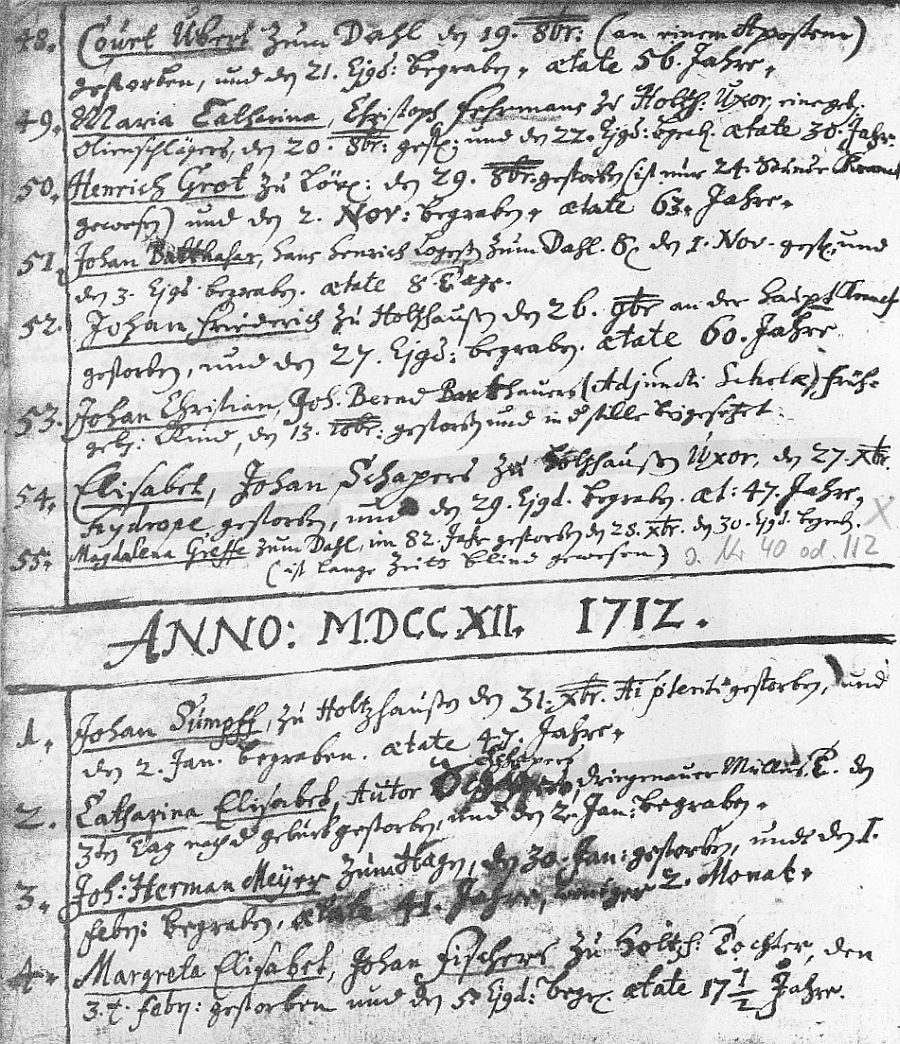 48. Court Ubert zum Dahl den 19. 8br: (an einem Aposteme)
gestorben, und den 21. Ejgd: begraben, ætate 56. Jahre,
49. Maria Catharina, Christoph Fehrmans zu Holtzh: Uxor, eine geb.
Olienschlägers, den 20. 8br: gest: und den 22. Ejgd: begrab. ætate 30. Jahr.
50. Henrich Grot zu Lörx: den 29. 8br: gestorben (ist nur 24. Stunde Kranck
gewesen) und den 2. Nov: begraben, ætate 63. Jahre.
51. Johan Balthasar, Hans Henrich zum Dahl. den 1. Nov. gest. und
den 3. Ejgd begraben. ætate 8 Tage.
52. Johan Friederich zu Holtzhausen den 26. 9br an der Haupt
gestorben, und den 27. Ejgd: begraben. ætate 60. Jahre
53. Johan Christian, Joh. Bernd (Adjuncti Scholæ) früh-
geb: Kind, den 13. 10br: gestorben und in d stille beigesetzet.
54. Elisabet, Johan Schapers zu Holtzhausen Uxor, den 27. xbr.
Hydrope gestorben, und den 29. Ejgd. begraben. æt: 47. Jahre, X
55. Magdalena Greffe zum Dahl, im 82. Jahr gestorben den 28. xbr. den 30. Ejgd. begrab.
(ist lange Zeits blind gewesen) Nr 40 od. 112
ANNO: MDCCXII. 1712.
1. Johan Sümpff, zu Holtzhausen den 31. xbr. gestorben, und
den 2. Jan. begraben. ætate 47. Jahre,
2. Catharina Elisabet, Autor Schapers Driegenauer Müllers T. den
3ten Tag nach d geburt gestorben, und den 2. Jan: begraben.
3. Joh: Herman Meÿer zum Hagen, den 30. Jan: gestorben, und den 1.
Febr: begraben, ætate 41. Jahre, weniger 2. Monat.
4. Margreta Elisabet, Johan Fischers zu Holtzh: Tochter, den
3.t. Febr: gestorben und den 5 Ejgd: begr. ætate 17 1/2 Jahre.